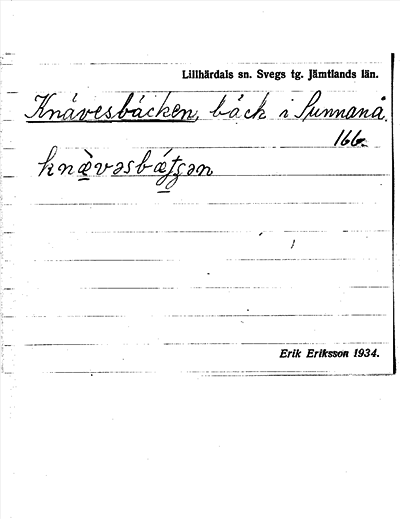 Lillhärdals sn. Svegs tg. Jämtlands län.
Knävesbäcken, bäck i Sunnanå.
166.
Erik Eriksson 1934.